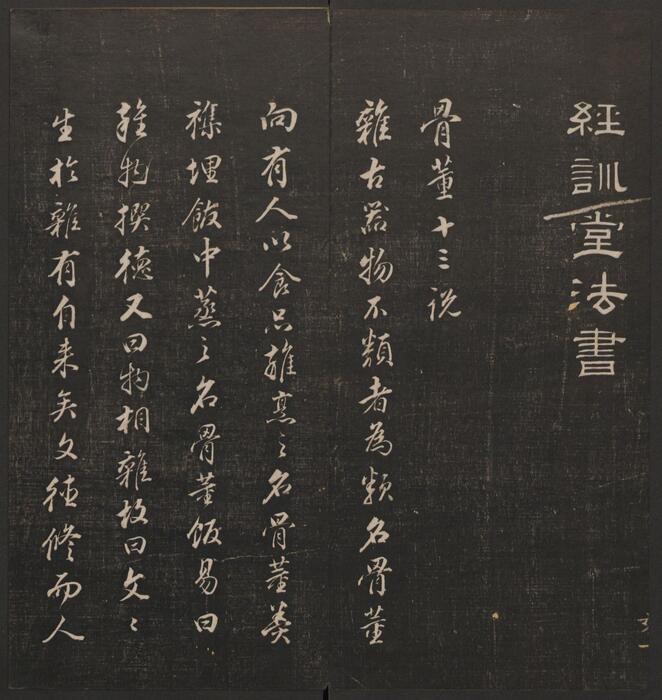 經訓堂法書
骨董十三說
雜古器物不類者為類名骨董
向有人以食品雜烹之名骨董羹
襍埋飯中蒸之名骨董飯易曰
雜物撰德又曰物相雜故曰文〻
生於雜有自来矣文德修而人